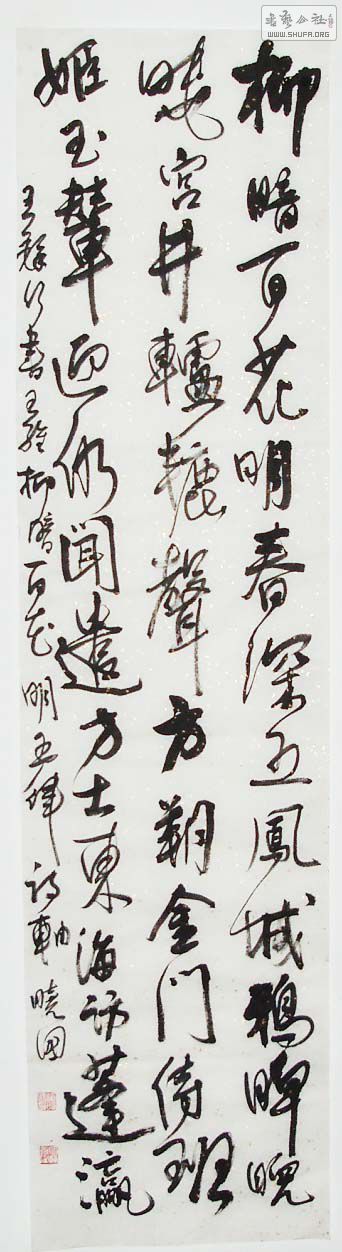 柳暗百花明春深五鳳城鴉睥睨
曉宮井轤轆聲方朔金門侍班
姬玉輦迎仍聞遣方士東海訪蓬瀛
王鐸行書王維柳暗百花明五律詩軸 曉國
書藝公社
WWW.SHUFA.ORG